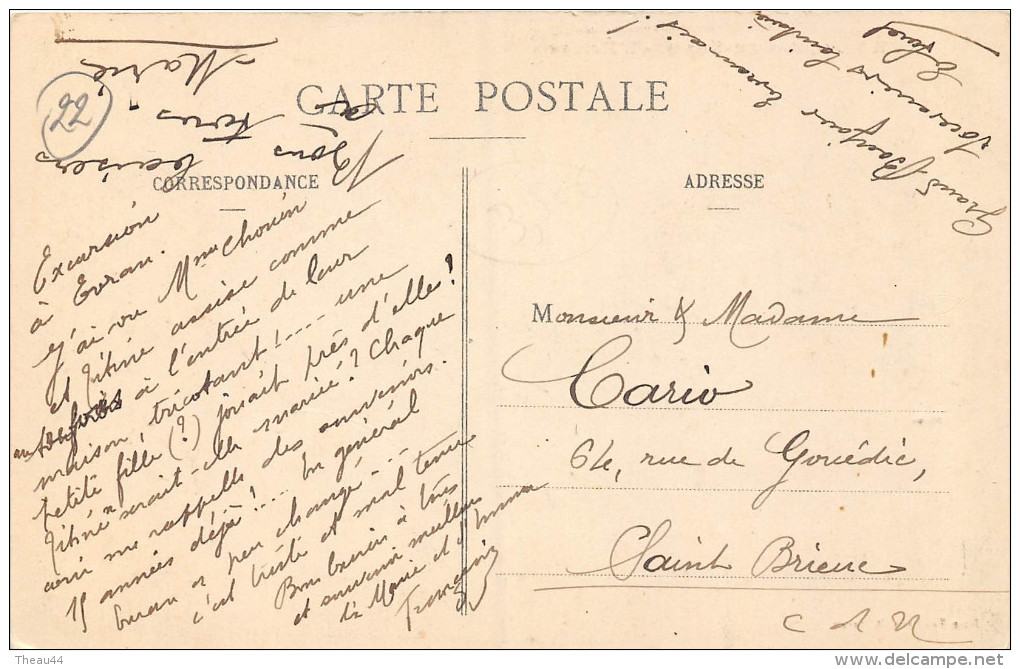 22
CARTE POSTALE
CORRESPONDANCE
ADRESSE
Bons baisers
à tous
Marie
Grand Bonjour Evrannais !
Souvenirs
Excursion
à Evran.
J'ai vu Mme Chouin
et Titine assise comme
autrefois à l'entrée de leur
maison, tricotant !.... une
petite fille (?) jouait près d'elle !
Titine serait-elle mariée ? Chaque
me rappelle des souvenirs.
15 années déjà !... En général
Evran a peu changé .....
c'est triste et mal tenu
Bons baisers à tous
et souvenir meilleur
de Marie et
Monsieur & Madame
Cario
64, rue de Gouédic,
Saint Brieuc
C d N
Theau44
delcampe.net